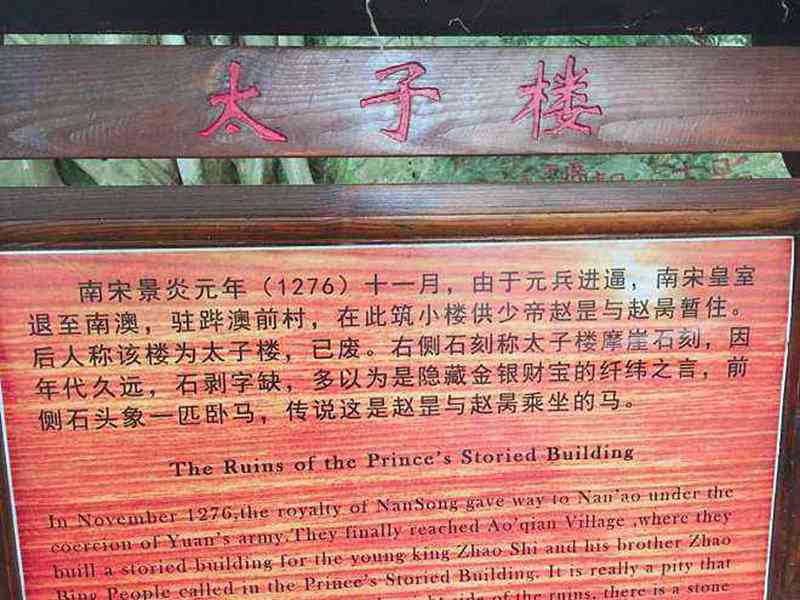 太子楼
南宋景炎元年（1276）十一月，由于元兵进逼，南宋皇室
退至南澳，驻跸澳前村，在此筑小楼供少帝赵昰与赵昺暂住。
后人称该楼为太子楼，已废。右侧石刻称太子楼摩崖石刻，因
年代久远，石剥字缺，多以为是隐藏金银财宝的纤纬之言，前
侧石头象一匹卧马，传说这是赵昰与赵昺乘坐的马。
The Ruins of the Prince's Storied Building
In November 1276,the royalty of NanSong gave way to Nan'ao under the
coercion of Yuan's army.They finally reached Ao'qian Village ,where they
buill a storied building for the young king Zhao Shi and his brother Zhao
Bing People called in the Prince's Storied Building. It is really a pity that
side of the ruins, there is a stone